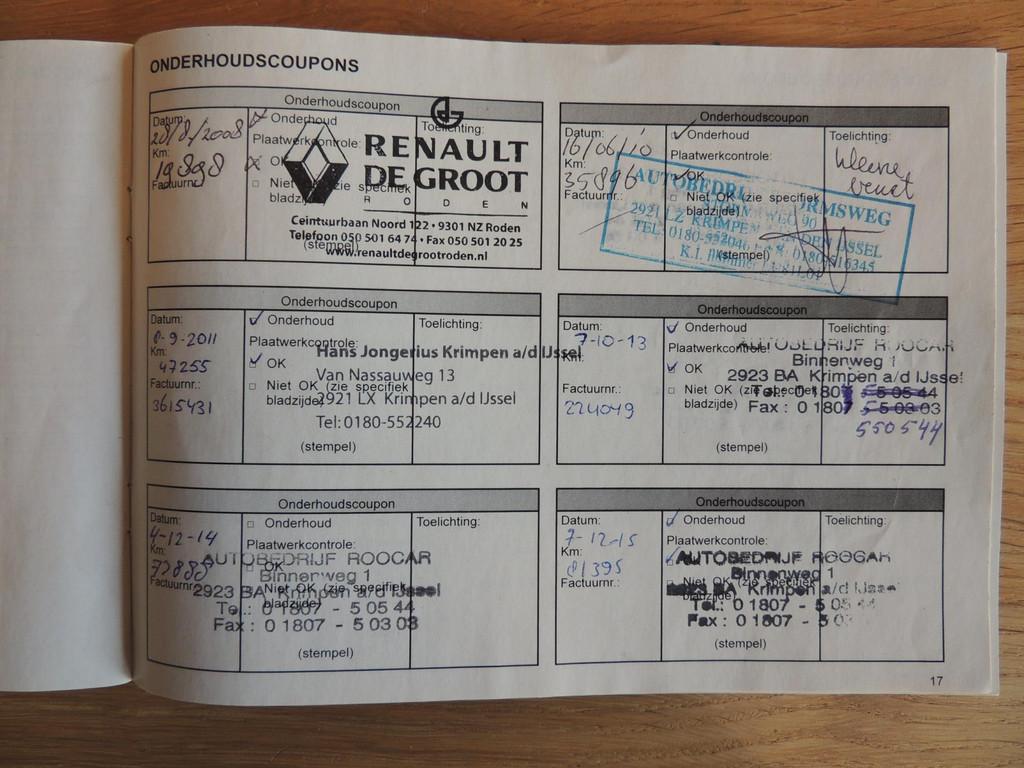 ONDERHOUDSCOUPONS
Onderhoudscoupon
Datum:
28/8/2008
Km:
19898
Factuurnr.:
Onderhoud
Plaatwerkcontrole:
OK
Niet OK (zie specifiek
bladzijde)
(stempel)
Toelichting:
RENAULT
DE GROOT
RODEN
Ceintuurbaan Noord 122 • 9301 NZ Roden
Telefoon 050 501 64 74 • Fax 050 501 20 25
www.renaultdegrootroden.nl
Onderhoudscoupon
Datum:
16/06/10
Km:
35896
Factuurnr.:
Onderhoud
Plaatwerkcontrole:
OK
Niet OK (zie specifiek
bladzijde)
(stempel)
Toelichting:
kleine
beurt
AUTOBEDRIJF STORMSWEG
STORMSWEG 90
2921 LZ KRIMPEN A/D DEN IJSSEL
Onderhoudscoupon
Datum:
8-9-2011
Km:
47255
Factuurnr.:
3615431
Onderhoud
Plaatwerkcontrole:
OK
Niet OK (zie specifiek
bladzijde)
(stempel)
Toelichting:
Hans Jongerius Krimpen a/d IJssel
Van Nassauweg 13
2921 LX Krimpen a/d IJssel
Tel: 0180-552240
Onderhoudscoupon
Datum:
7-10-13
Km:
Factuurnr.:
224049
Onderhoud
Plaatwerkcontrole:
OK
Niet OK (zie specifiek
bladzijde)
(stempel)
Toelichting:
AUTOBEDRIJF ROOCAR
Binnenweg 1
2923 BA Krimpen a/d IJssel
Tel.: 0 1807 - 5 05 44
Fax : 0 1807 - 5 03 03
550544
Onderhoudscoupon
Datum:
4-12-14
Km:
73888
Factuurnr.:
Onderhoud
Plaatwerkcontrole:
OK
Niet OK (zie specifiek
bladzijde)
(stempel)
Toelichting:
AUTOBEDRIJF ROOCAR
Binnenweg 1
2923 BA Krimpen a/d IJssel
Tel.: 0 1807 - 5 05 44
Fax : 0 1807 - 5 03 03
Onderhoudscoupon
Datum:
7-12-15
Km:
81395
Factuurnr.:
Onderhoud
Plaatwerkcontrole:
Niet OK (zie specifiek
bladzijde)
(stempel)
Toelichting:
AUTOBEDRIJF ROOCAR
Binnenweg 1
BA Krimpen a/d IJssel
Tel.: 0 1807 - 5 05 44
Fax : 0 1807 - 5 0
17